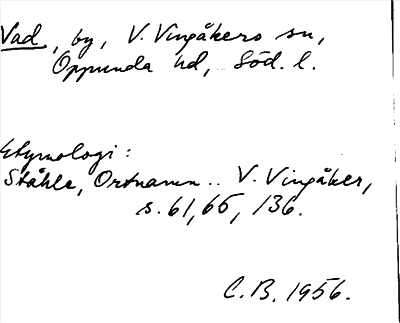 Vad, by, V. Vingåkers sn,
Oppunda hd, Söd. l.
Etymologi:
Ståhle, Ortnamn .. V. Vingåker,
s. 61, 65, 136.
C. B. 1956.